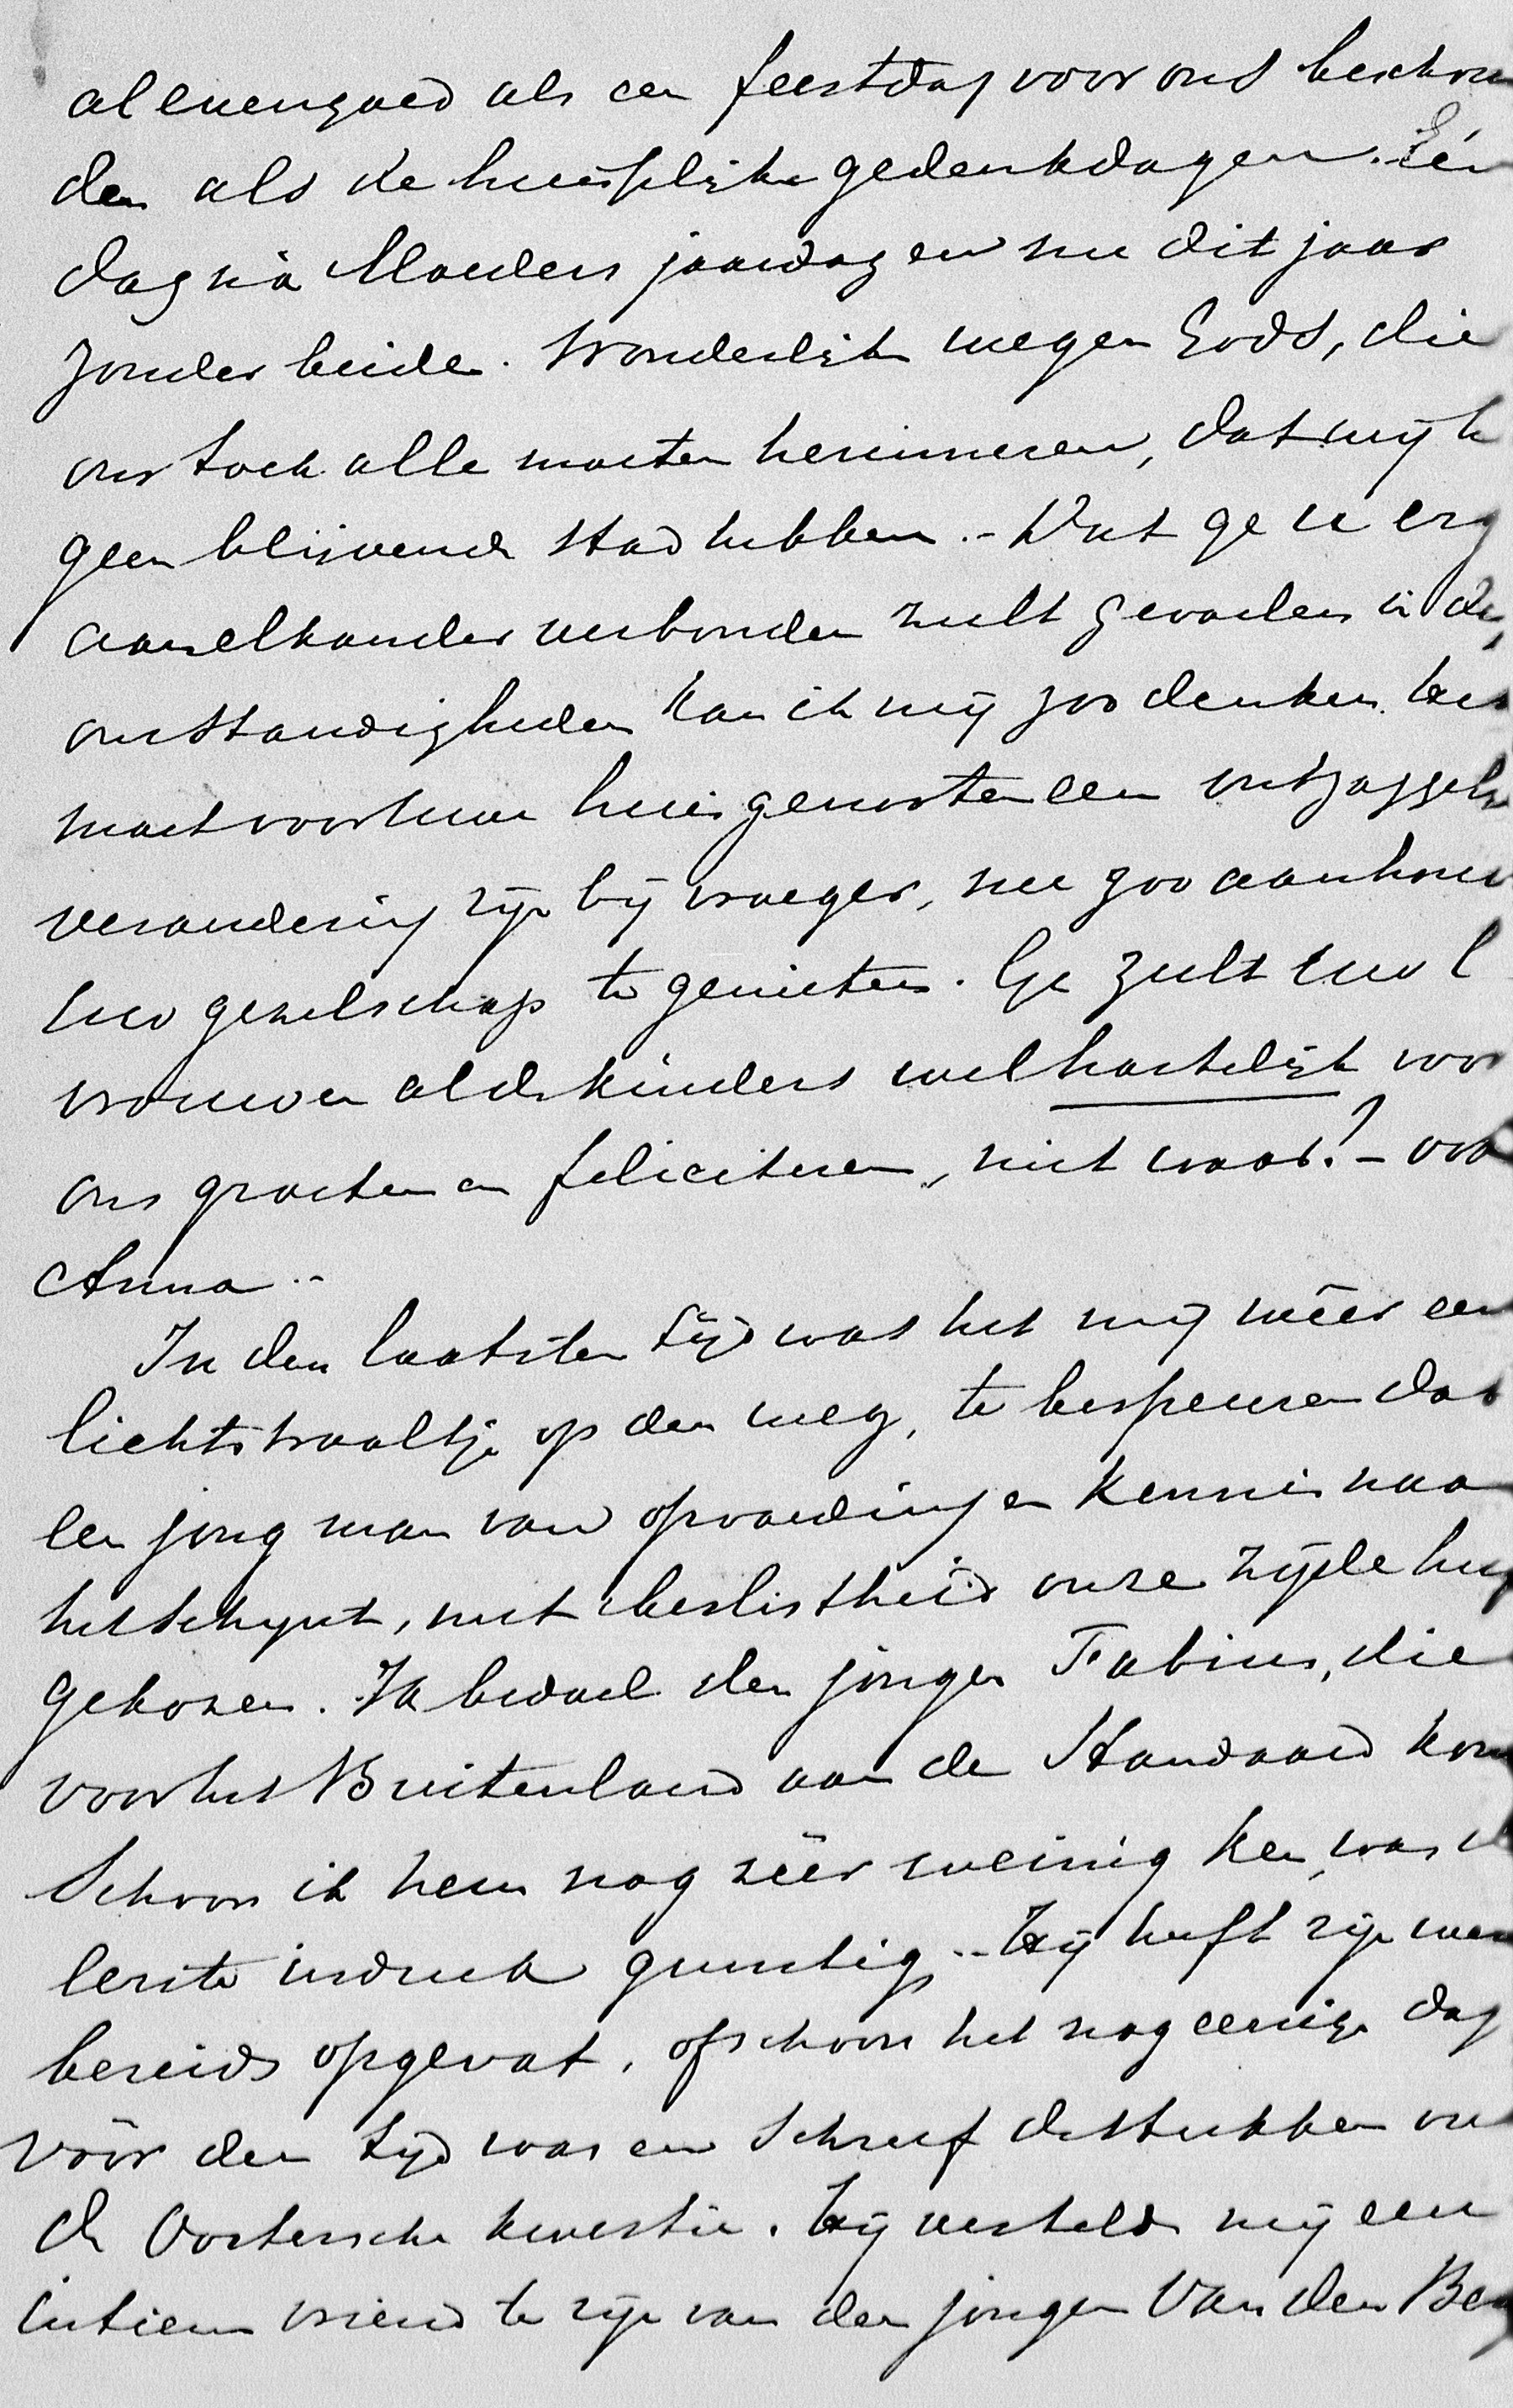 al evengoed als een feestdag voor ons beschou
den als de huislijke gedenkdagen. Eén
dag nà Moeders jaardag en nu dit jaar
zonder beide. Wonderlijke wegen Gods, die
ons toch alle moeten herinneren, dat wij h
geen blijvende stad hebben. - Dat ge u erg
aan elkander verbonden zult gevoelen in de
omstandigheden kan ik mij zoo denken. Het
moet voor uwe huisgenooten een ontzaggelij
verandering zijn bij vroeger, nu zoo aanhou
uw gezelschap te genieten. Ge zult uwe
vrouw en al de kinders wel hartelijk voor
ons groeten en feliciteren, niet waar? - ook
Anna. -
In den laatsten tijd was het mij wéér een
lichtstraaltje op den weg, te bespeuren dat
een jong man van opvoeding en kennis naar
het schijnt, met beslistheid onze zijde heeft
gekozen. Ik bedoel den jongen Fabius, die
voor het Buitenland aan de Standaard kom
Schoon ik hem nog zéér weinig ken, was de
eerste indruk gunstig. - Hij heeft zijn werk
bereids opgevat, ofschoon het nog eenige dag
vóór den tijd was en schreef de stukken over
de Oostersche kwestie. Hij vertelde mij een
intiem vriend te zijn van den jongen Van den Ber